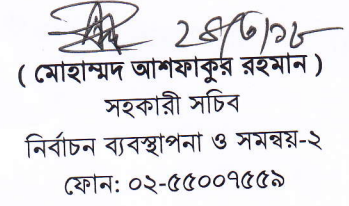 ( মোহাম্মদ আশফাকুর রহমান )
সহকারী সচিব
নির্বাচন ব্যবস্থাপনা ও সমন্বয়-২
ফোন: ০২-৫৫০০৭৫৫৯